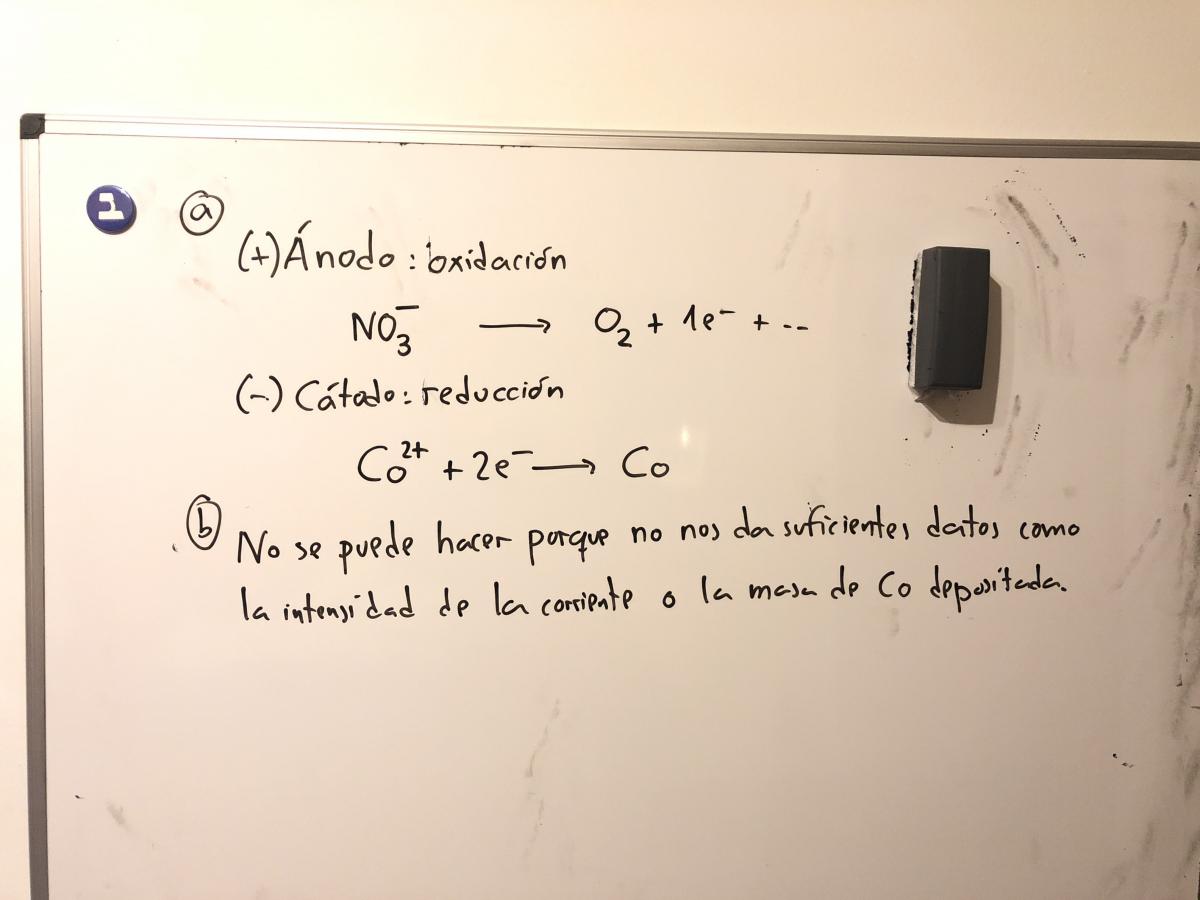 ב
a
(+) Ánodo: oxidación
NO₃⁻ → O₂ + 1e⁻ + ...
(-) Cátado: reducción
Co²⁺ + 2e⁻ → Co
b
No se puede hacer porque no nos da suficientes datos como
la intensidad de la corriente o la masa de Co depositada.